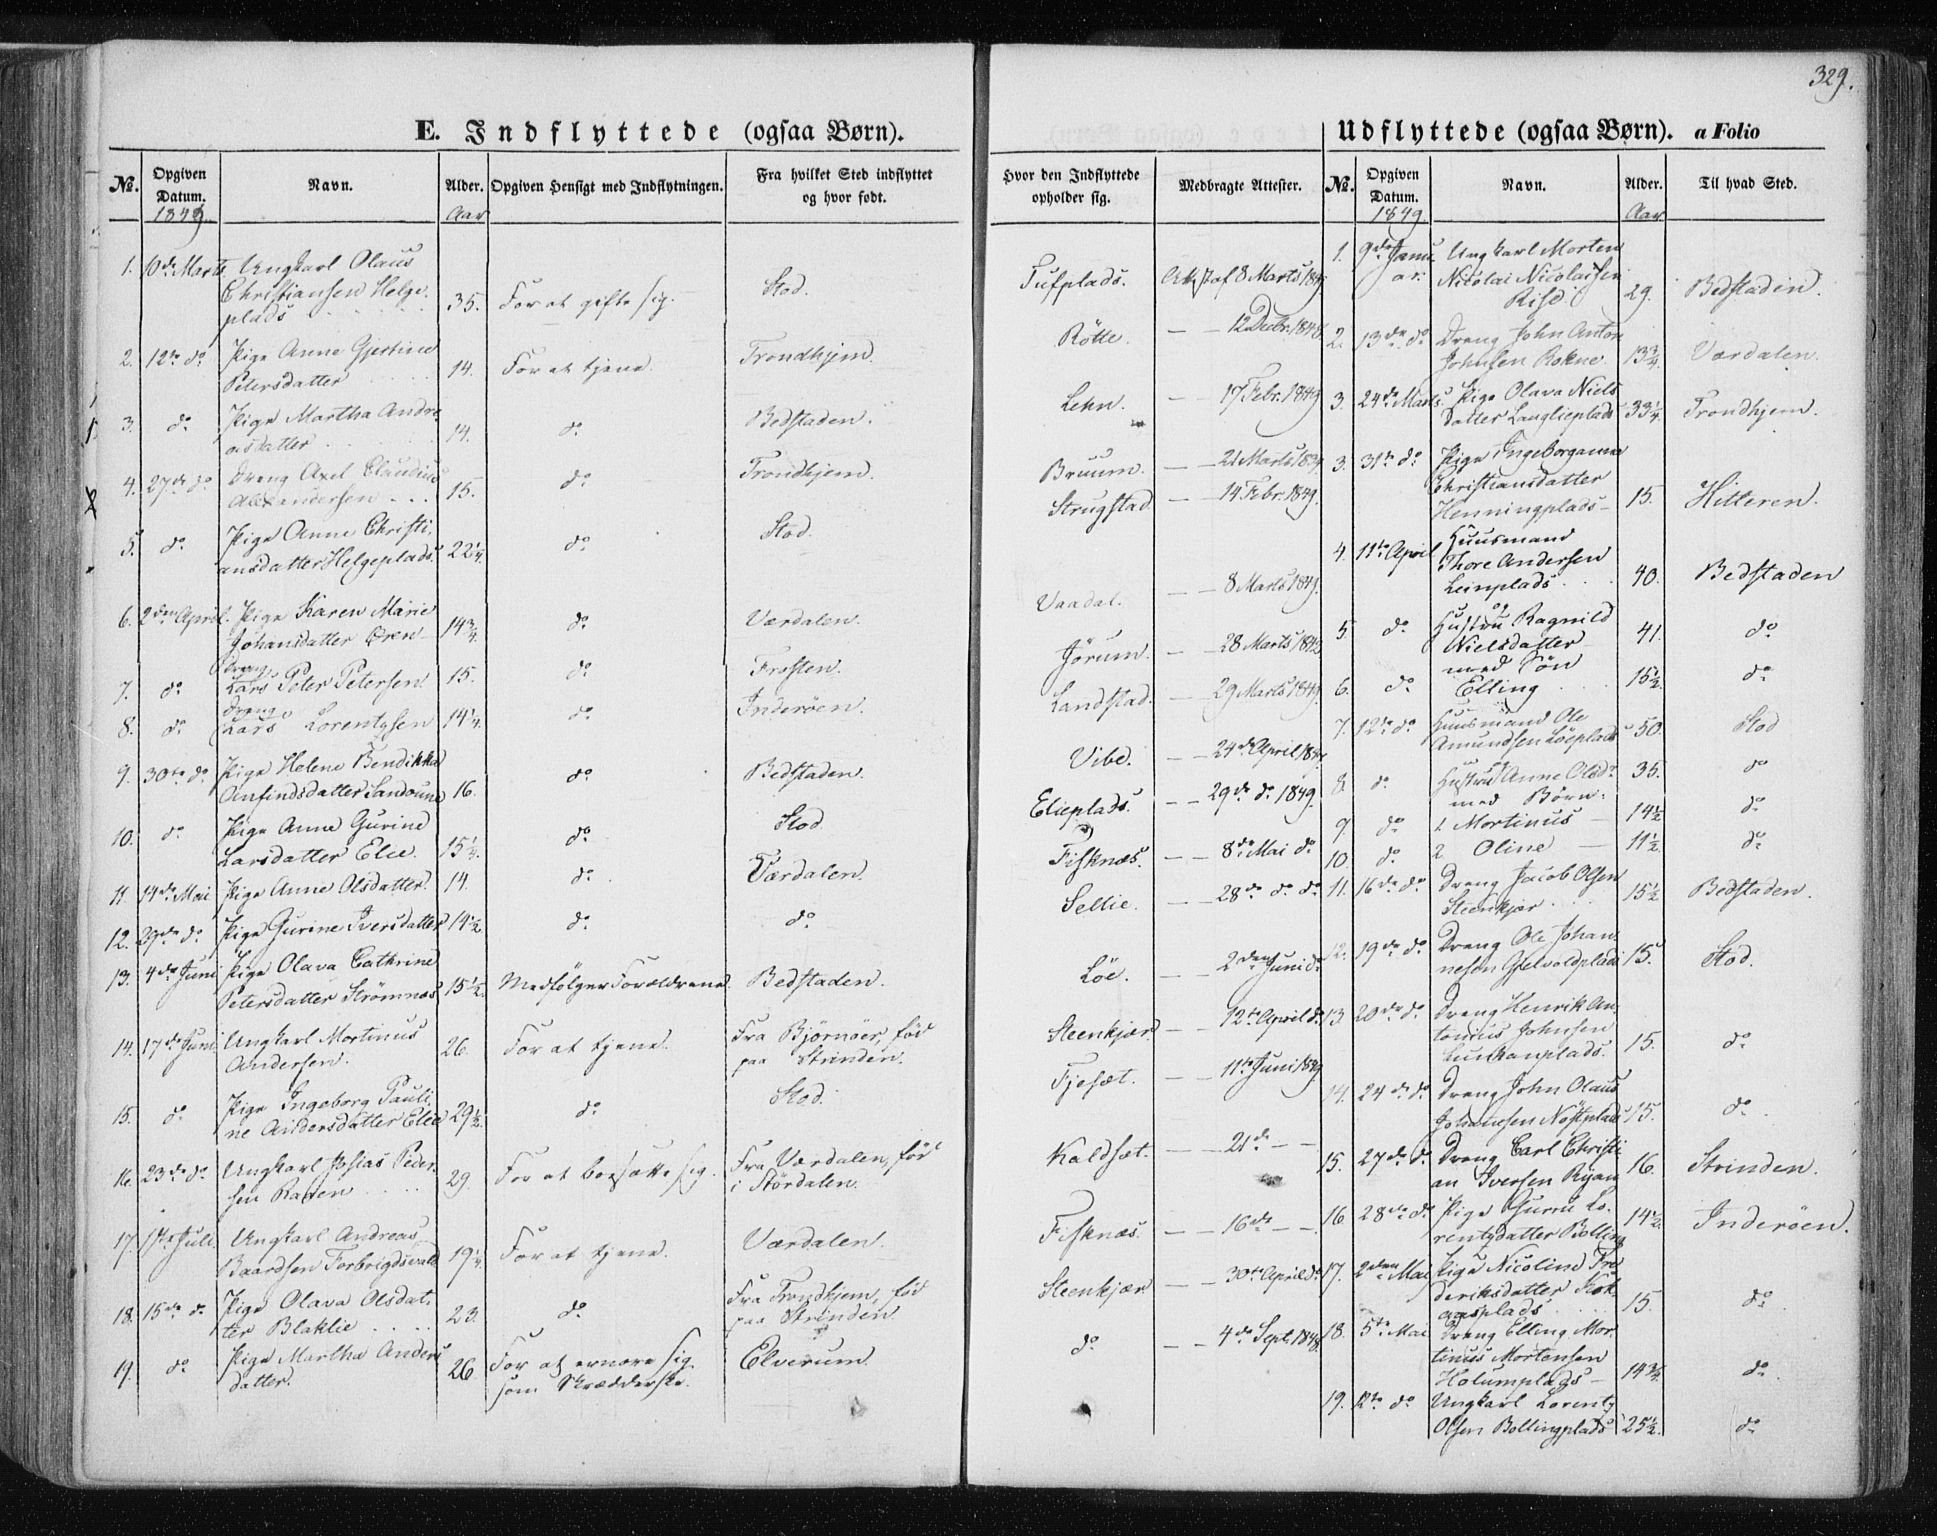 329.
E. Indflyttede (ogsaa Børn).
No. Opgiven Datum. Navn. Alder. Opgiven Hensigt med Indflytningen. Fra hvilket Sted indflyttet og hvor født. Hvor den Indflyttede opholder sig. Medbragte Attester.
1849. Aar
1. 10de Marts Ungkarl Olaus
Christiansen Helge-
plads 35. For at gifte sig. Stod. Tufplads. Attest af 8 Marts 1849
2. 12te do Pige Anne Gjertine
Petersdatter 14. For at tjene. Trondhjem. Rötte. — — 12 Decbr. 1848.
3. do Pige Martha Andre
asdatter 14. do Bedstaden. Lehn. — — 17 Febr. 1849
4. 27de do Dreng Axel Claudius
Alexandersen 15. do Trondhjem. Bruum. — — 21 Marts 1839
5. do Pige Anne Christi-
ansdatter Helgeplads. 22 1/4. do Stod. Strugstad. — — 14 Febr. 1849.
6. 2den April. Pige Karen Marie
Johansdatter Oren 14 3/4. do Værdalen. Vaadal. — — 8 Marts 1849.
7. do Dreng
Lars Peter Petersen 15. do Frosten. Jörum. — — 28 Marts 1849
8. do Dreng
Lars Lorentzsen 14 1/4. do Inderöen. Landstad. — — 29 Marts 1849.
9. 30te do Pige Helene Bendikka
Anfindsdatter Sandoune 16. do Bedstaden. Vibe. — — 24de April 1849
10. do Pige Anne Gurine
Larsdatter Elie. 15 1/4. do Stod. Elieplads. — — 29de do 1849.
11. 14de Mai Pige Anne Olsdatter. 14. do Værdalen. Fisknæs. — — 8de Mai do
12. 29de do Pige Gurine Iversdatter 14 1/2 do do Sellie. — — 28de do do
13. 4de Juni Pige Olava Cathrine
Petersdatter Strömnæs 15 1/2. Medfölger Forældrene. Bedstaden. Löe. — — 2den Juni do
14. 17de Juni Ungkarl Mortinus
Andersen. 26. For at tjene. Fra Björnöer, föd
paa Strinden. Steenkjær. — — 12te April do
15. do Pige Ingeborg Pauli-
ne Andersdatter Elie 29 1/2. do Stod. Fjesæt. — — 11te Juni 1849
16. 23de do Ungkarl Josias Peder-
sen Raaen 29. For at bosætte sig. Fra Værdalen, föd
i Stördalen. Kaldsæt. — — 21de — —
17. Juli Ungkarl Andreas
Baardsen Forbrigdsvald 19 1/4. For at tjene. Værdalen. Fisknæs. — — 16de — —
18. 15de do Pige Olava Olsdat-
ter Blaklie 23. do Fra Trondhjem, föd
paa Strinden. Steenkjær — — 30te April do
19. do Pige Martha Anders
datter. 26. For at ernære sig
som Skrædderske. Elverum. do — — 4de Sept. 1848
Udflyttede (ogsaa Børn). a Folio
No. Opgiven Datum. Navn. Alder. Til hvad Sted.
1849. Aar
1. 9de Janu
ar. Ungkarl Morten
Nicolai Nicolaisen
Risé 29. Bedstaden.
2. 13de do Dreng John Anton
Johnsen Rokne 13 3/4. Værdalen.
3. 24de Marts. Pige Olava Niels
datter Langlieplads 33 1/4. Trondhjem.
3. 31te do Pige Ingeborganna
Christiansdatter
Henningplads 15. Hitteren.
4. 11te April Huusmand
Thore Andersen
Leinplads 40. Bedstaden
5. do og
Hustru Ragnild
Nielsdatter 41. do
6. do med Søn
Elling 15 1/2. do
7. 12te do Huusmand Ole
Amundsen Löeplads 50. Stod
8. do og
Hustru Anne Olsdr 35. do
med Börn.
9 do 1. Mortinus 14 1/2 do
10. do 2 Oline 11 1/2. do
11. 16de do Dreng Jacob Olsen
Steenkjær 15 1/2 Bedstaden.
12. 19de do Dreng Ole Johan-
nesen Gjelvoldplads 15. Stod.
13. 20de do Dreng Henrik An-
tonius Johnsen
15. do
14. 24de do Dreng John Olaus
Johannesen Nöstplads 15. do.
15. 27de do Dreng Carl Christi
an Iversen Ryan 16. Strinden.
16 28de do Pige Gurru Lo-
rentzdatter Bolling 14 1/2. Inderöen.
17. 2den Mai Pige Nicoline Fre
deriksdatter
aasplads 15. do
18. 5te Mai Dreng Elling Mor-
tinus Mortensen
Holumplads 14 3/4. do
19. 12te do Ungkarl Lorentz
Olsen Bollingplads 25 1/2. do